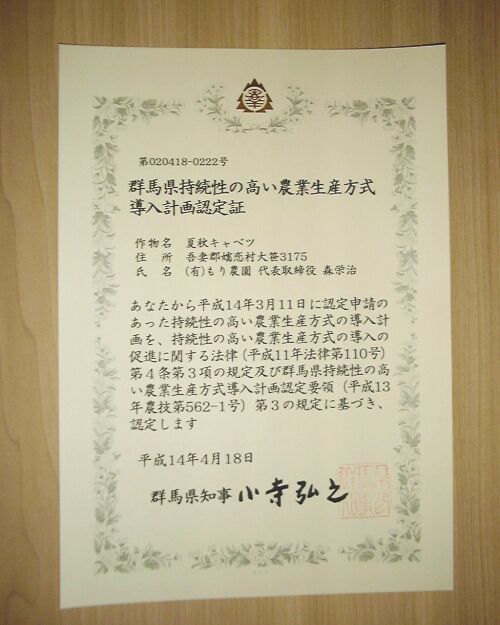 第020418-0222号
群馬県持続性の高い農業生産方式
導入計画認定証
作物名 夏秋キャベツ
住 所 吾妻郡嬬恋村大笹3175
氏 名 (有)もり農園 代表取締役 森栄治
あなたから平成14年3月11日に認定申請の
あった持続性の高い農業生産方式の導入計
画を、持続性の高い農業生産方式の導入の
促進に関する法律(平成11年法律第110号)
第4条第3項の規定及び群馬県持続性の高
い農業生産方式導入計画認定要領(平成13
年農技第562-1号)第3の規定に基づき、
認定します
平成14年4月18日
群馬県知事 小寺弘之